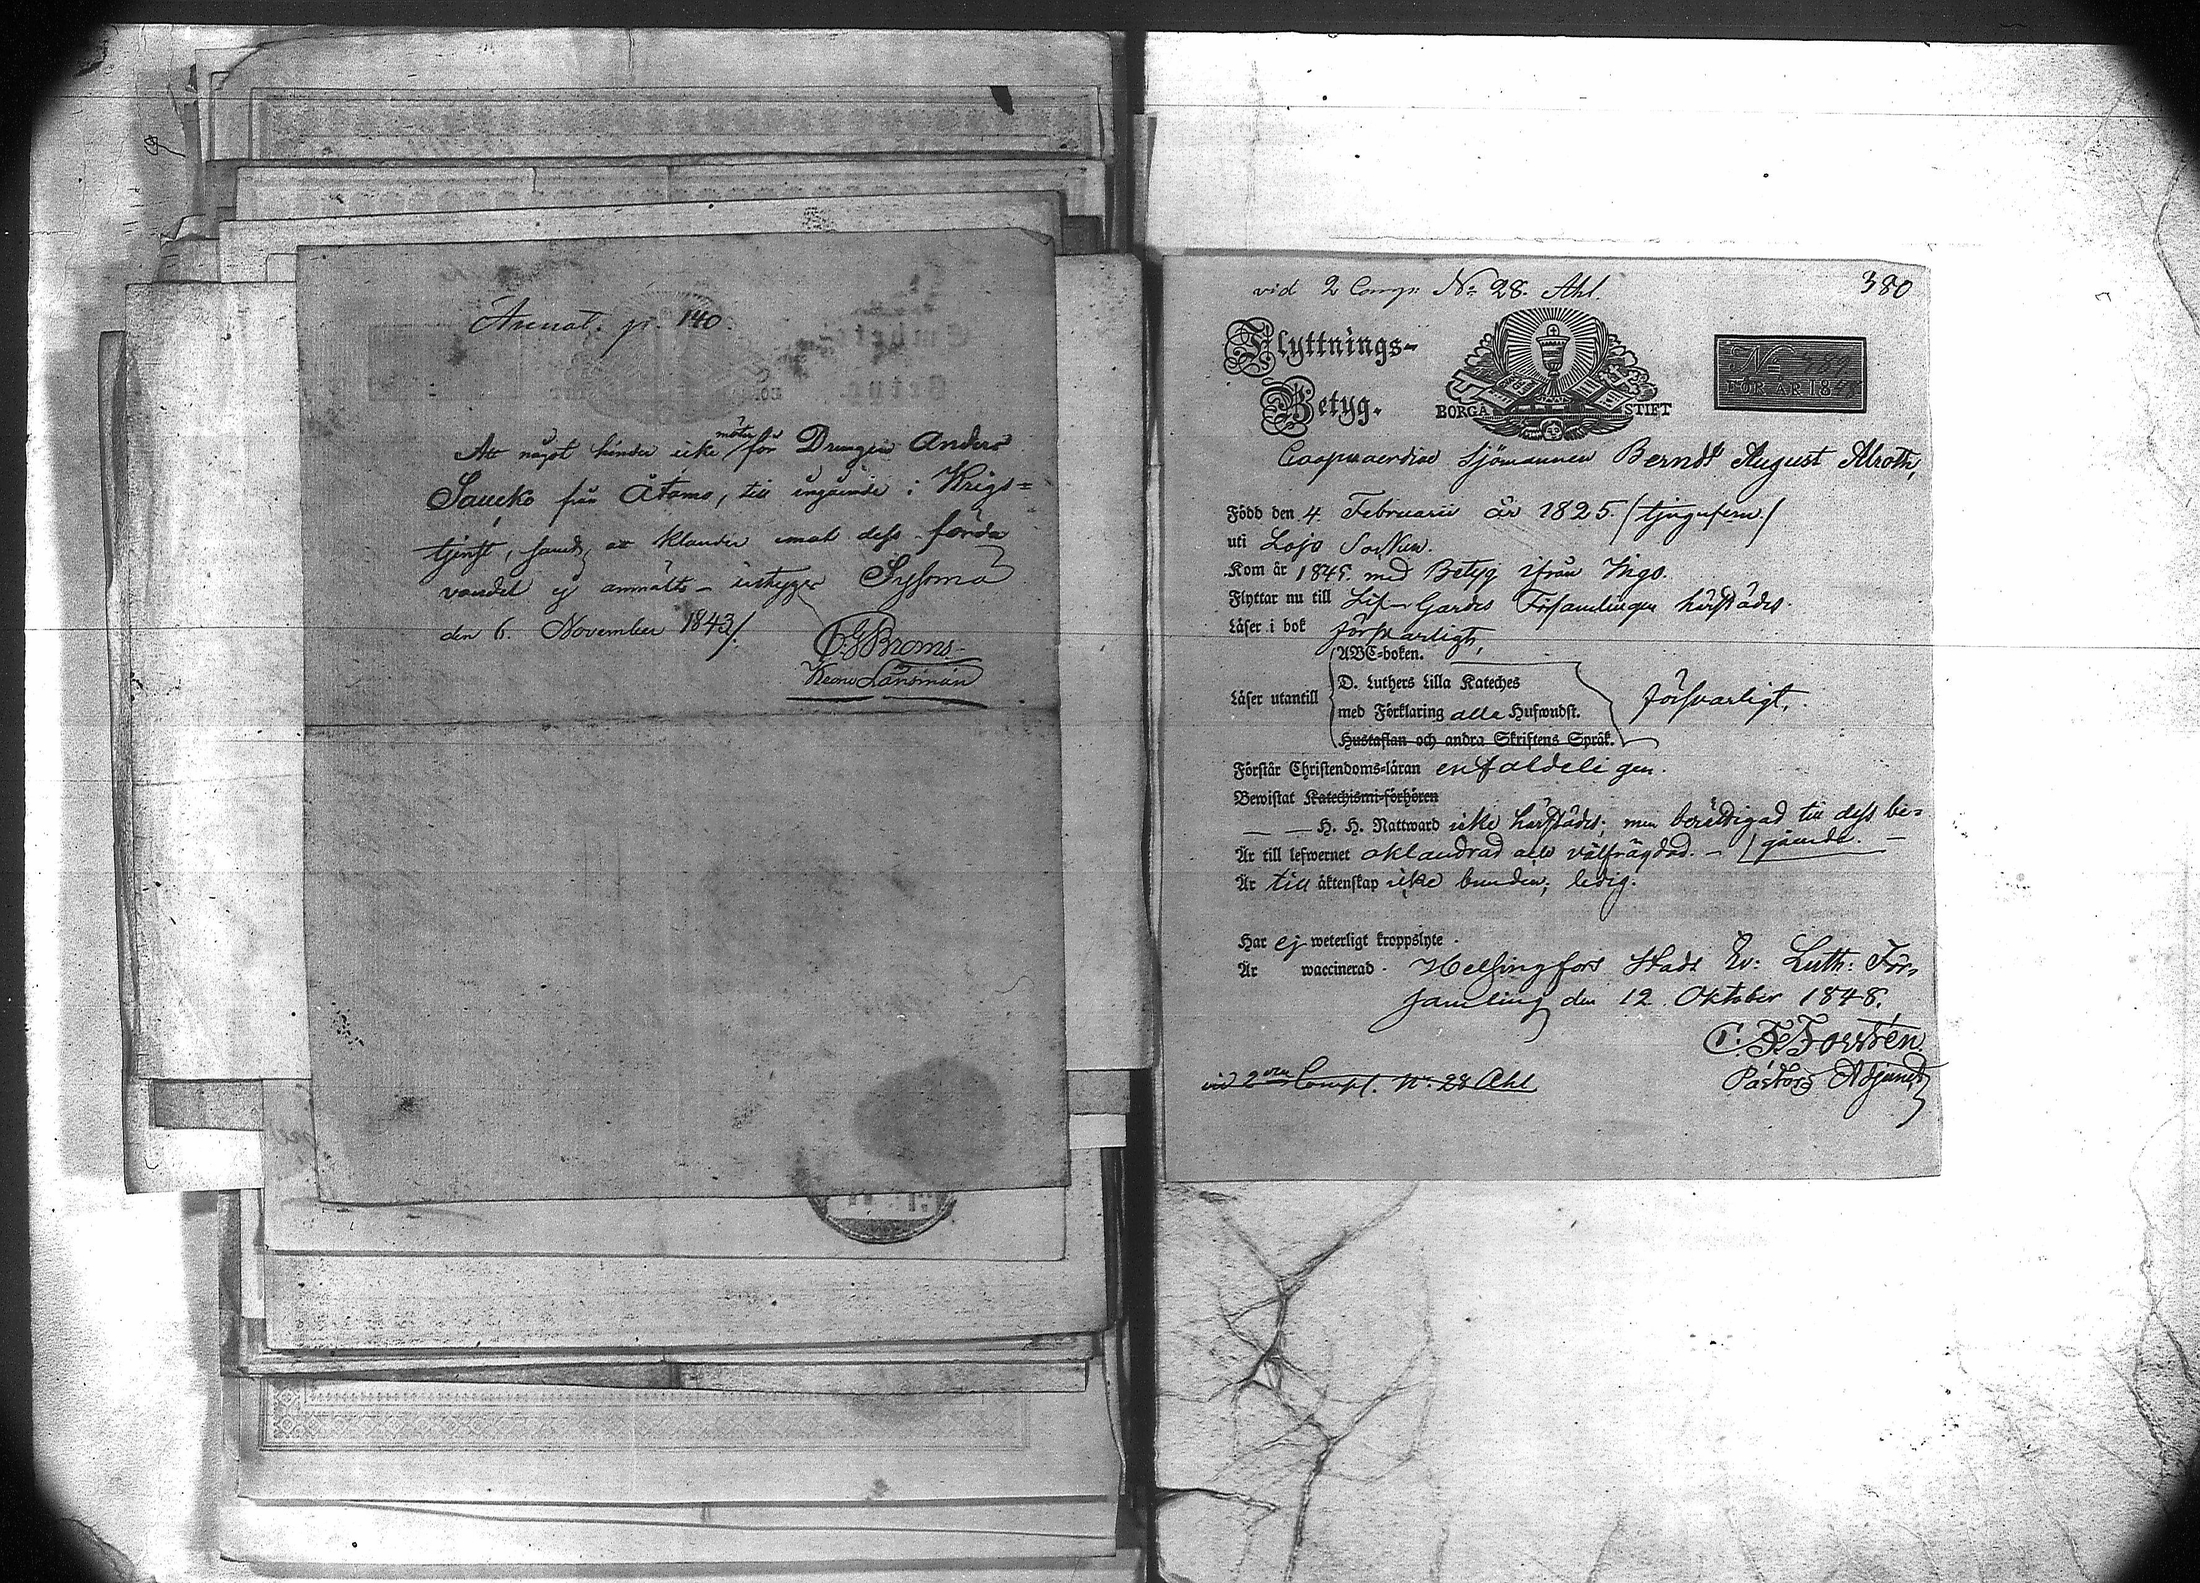 Annot. p. 140.
Att något hinder icke möter för Drengen Anders
Saucko från Åtamo, till ingående i Krigs=
tjenst, samt att klander emot dess förda
vandel ej anmälts – intygar Syssmä
den 6. November 1843/.
C. G. Broms.
Krono Länsman
vid 2 Comp: No 28. Ahl.
380
Flyttnings-
Betyg.
BORGÅ STIFT
No 389
FÖR ÅR 1848
Coopvaerdiae Sjömannen Berndt August Alroth,
Född den 4. Februarii år 1825. /tjugufem./
uti Lojo Socken.
Kom år 1845. med Betyg ifrån Ingo.
Flyttar nu till Lif-Gardes Församlingen härstädes.
Läser i bok försvarligt,
ABC-boken.
D. Luthers Lilla Kateches
Läser utantill
med Förklaring alla Hufwudst.
försvarligt.
Hustaflan och andra Skriftens Språk.
Förstår Christendoms-läran enfaldeligen.
Bewistat Katechismi-förhören
— — H. H. Nattward icke härstädes; men berättigad till dess be-
Är till lefwernet oklandrad och välfrägdad. – /gående.
Är till äktenskap icke bunden; ledig.
Har ej weterligt kroppslyte.
Är waccinerad. Helsingfors Stads Ev: Luth: För-
samling den 12 Oktober 1848.
C. F. Forstén.
Pastors Adjunct
vid 2dra Comp. No 28 Ahl